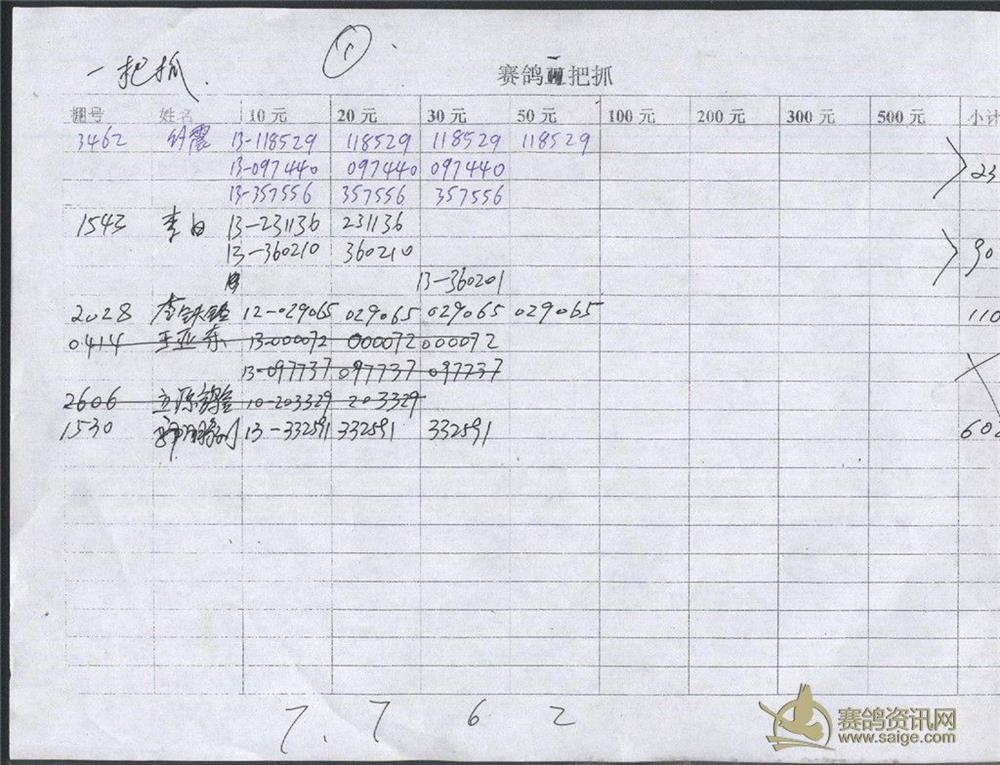 一把抓. 1
赛鸽 一 把抓
棚号 姓名 10元 20元 30元 50元 100元 200元 300元 500元 小计
3462 13-118529 118529 118529 118529
13-097440 097440 097440 23
13-357556 357556 357556
1543 李白 13-231136 231136
13-360210 360210 90
13-360201
2028 李铁 12-029065 029065 029065 029065 110
0414 王亚东 13-000072 000072 000072
13-097737 097737 097737
2606 10-203329 203329
1530 13-332591 332591 332591 60
7. 7 6 2
赛鸽资讯网
www.saige.com